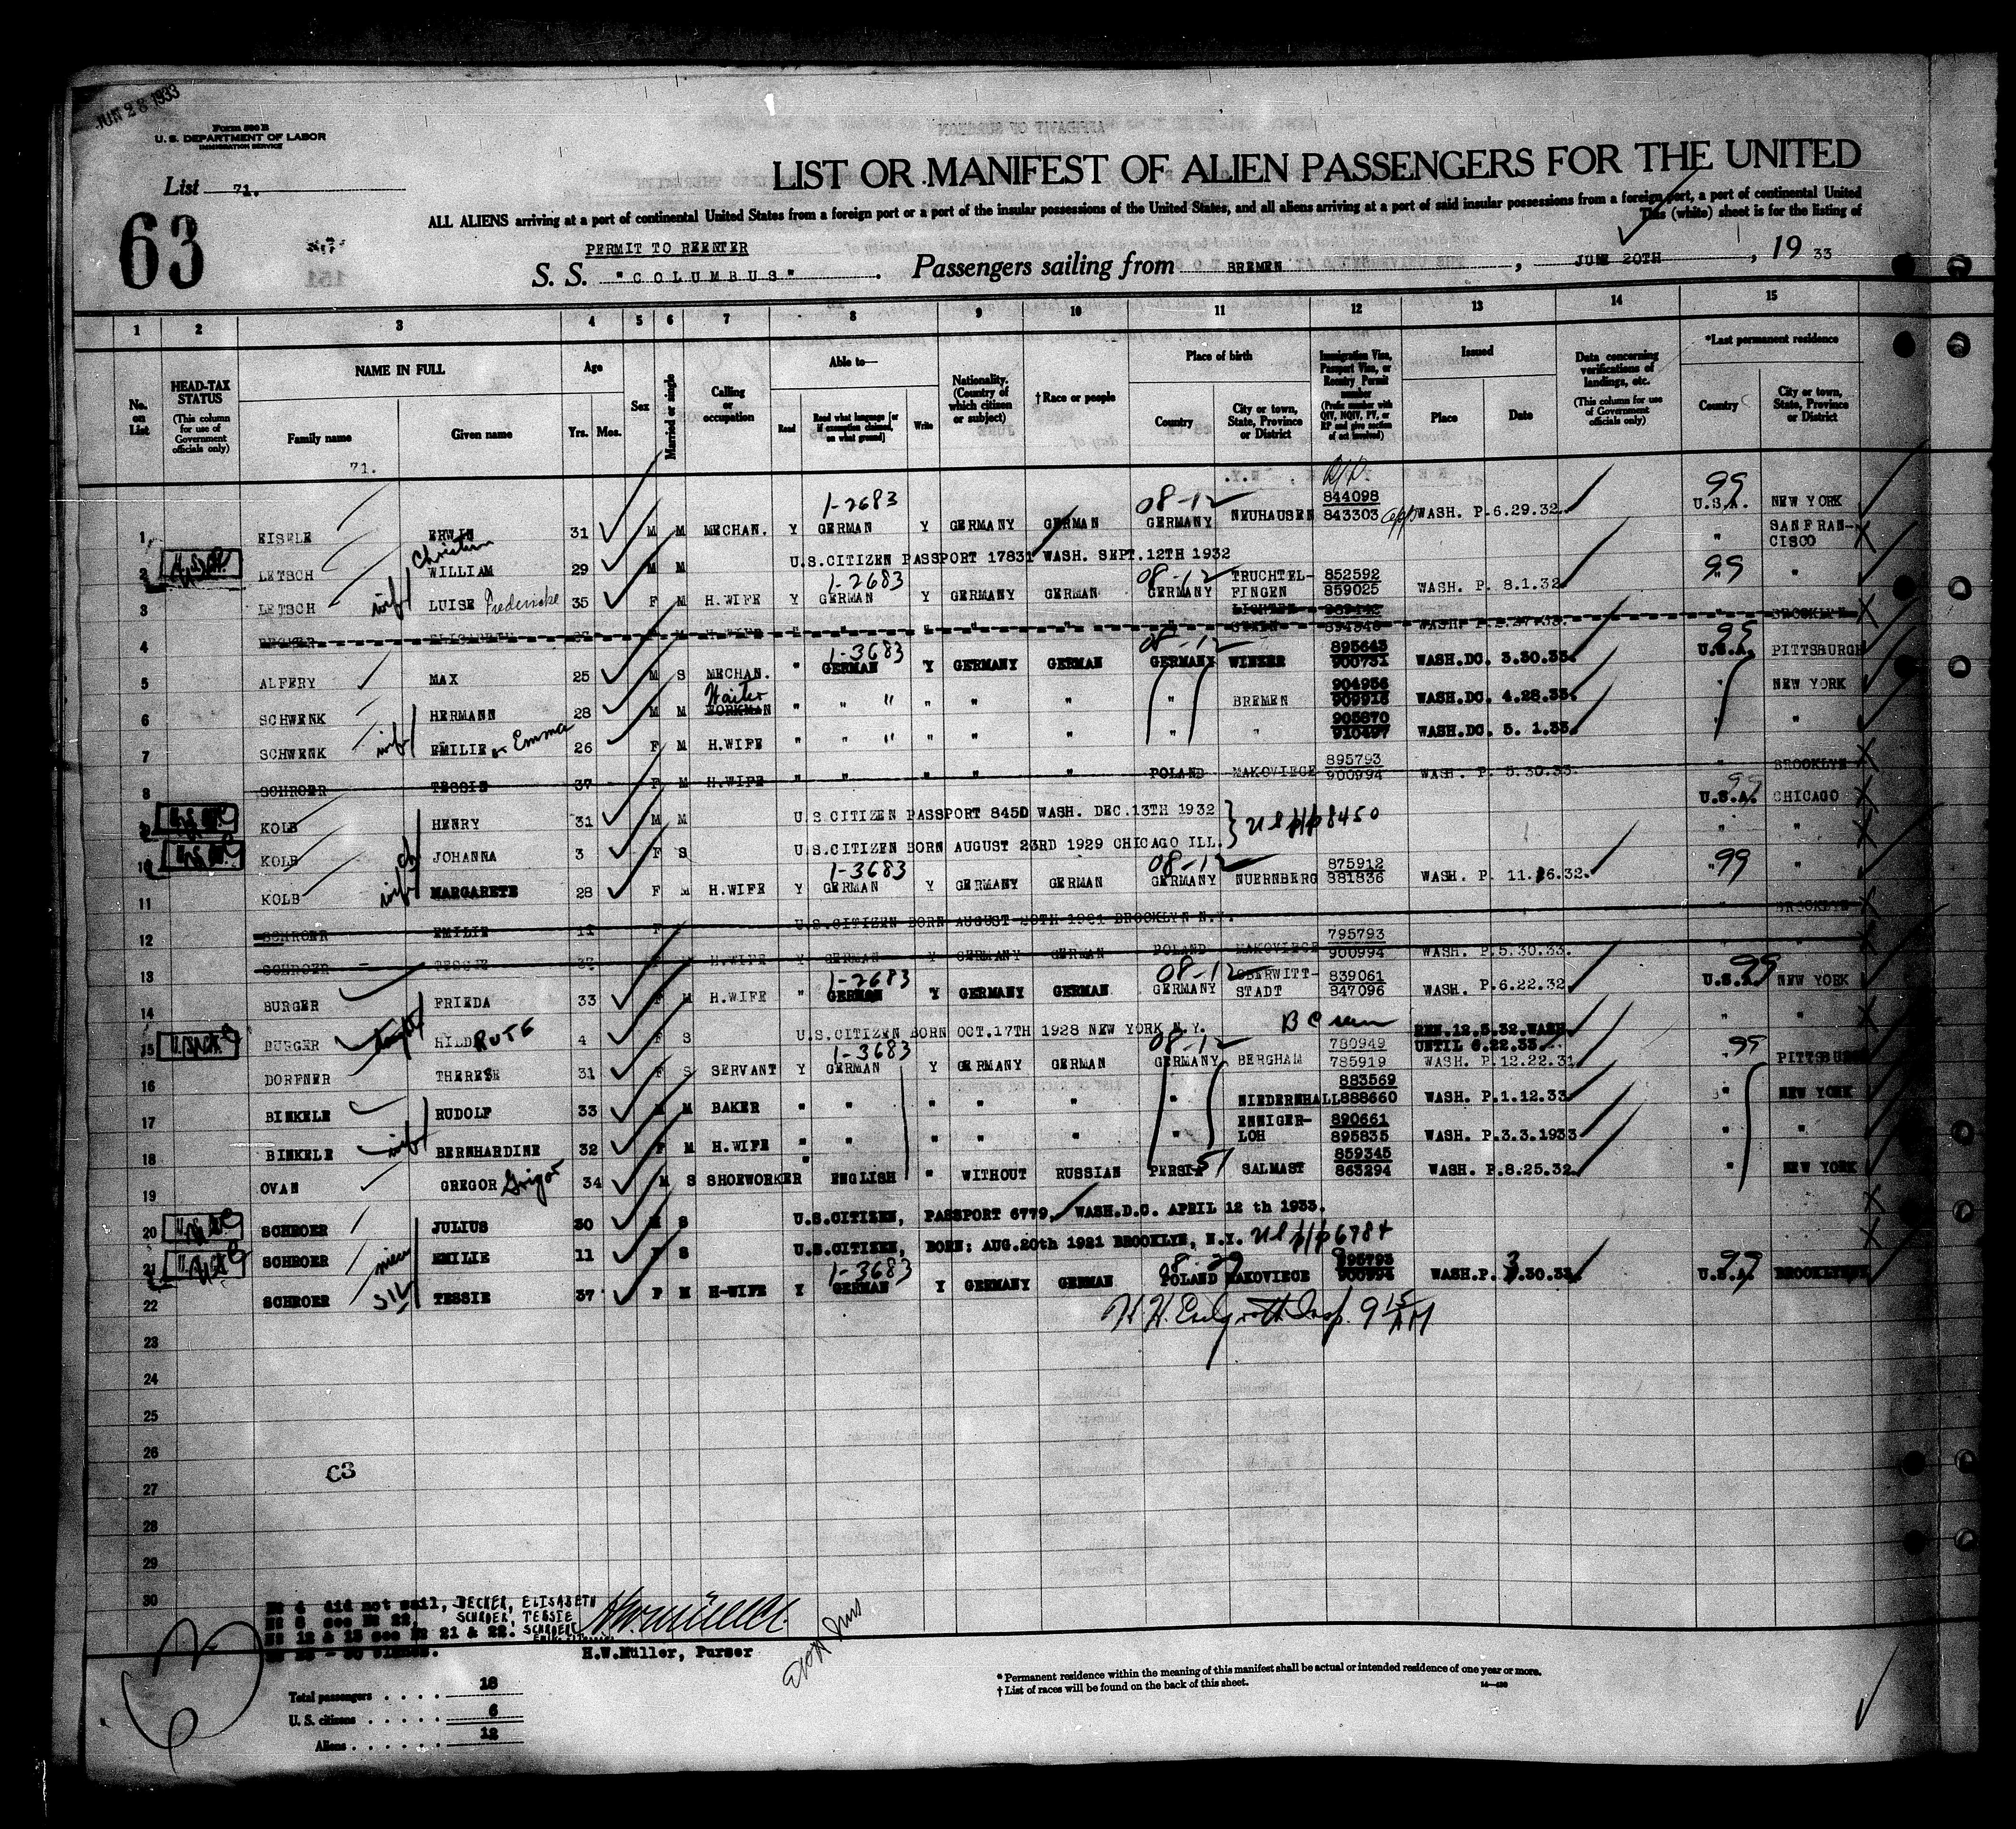 JUN 28 1933
Form 500 B
U. S. DEPARTMENT OF LABOR
IMMIGRATION SERVICE
List 71.
63
LIST OR MANIFEST OF ALIEN PASSENGERS FOR THE UNITED
ALL ALIENS arriving at a port of continental United States from a foreign port or a port of the insular possessions of the United States, and all aliens arriving at a port of said insular possessions from a foreign port, a port of continental United
This (white) sheet is for the listing of
PERMIT TO REENTER
S. S. "COLUMBUS" Passengers sailing from BREMEN, JUNE 20TH, 19 33
1 2 3 4 5 6 7 8 9 10 11 12 13 14 15
No. on List
HEAD-TAX STATUS (This column for use of Government officials only)
NAME IN FULL
Family name Given name
Age
Yrs. Mos.
Sex
Married or single
Calling or occupation
Able to—
Read Read what language [or if exemption claimed, on what ground] Write
Nationality. (Country of which citizen or subject)
† Race or people
Place of birth
Country City or town, State, Province or District
Immigration Visa, Passport Visa, or Reentry Permit number (Prefix number with QIV, NQIV, PV, or RP and give section of act involved)
Issued
Place Date
Data concerning verifications of landings, etc. (This column for use of Government officials only)
*Last permanent residence
Country City or town, State, Province or District
71.
1 EISELE ERWIN 31 M M MECHAN. Y GERMAN 1-2683 Y GERMANY GERMAN GERMANY 08-12 NEUHAUSEN 844098 843303 WASH. P.6.29.32. 99 U.S.A. NEW YORK
2 LETSCH WILLIAM Christian 29 M M U.S.CITIZEN PASSPORT 17831 WASH. SEPT.12TH 1932 " SAN FRANCISCO
3 LETSCH wife LUISE Fredericke 35 F M H.WIFE Y GERMAN 1-2683 Y GERMANY GERMAN GERMANY 08-12 TRUCHTELFINGEN 852592 859025 WASH. P. 8.1.32. 99 " "
4 BECKER ELISABETH F M H.WIFE " " " " " " WASH. BROOKLYN
5 ALFERY MAX 25 M S MECHAN. " GERMAN 1-3683 Y GERMANY GERMAN GERMANY 08-12 WINZER 895643 900731 WASH.DC. 3.30.33. 99 U.S.A. PITTSBURGH
6 SCHWENK HERMANN 28 M M WORKMAN Waiter " " " " " " " BREMEN 904956 909916 WASH.DC. 4.28.33. " NEW YORK
7 SCHWENK wife EMILIE or Emma 26 F M H.WIFE " " " " " " " " 905870 910497 WASH.DC. 5. 1.33. " "
8 SCHROER TESSIE 37 F M H.WIFE " " " " " POLAND MAKOVIECE 895793 900994 WASH. P. 5.30.33. " BROOKLYN
9 KOLB HENRY 31 M M U.S.CITIZEN PASSPORT 845D WASH. DEC.13TH 1932 99 U.S.A. CHICAGO
10 KOLB ch JOHANNA 3 F S U.S.CITIZEN BORN AUGUST 23RD 1929 CHICAGO ILL. " "
11 KOLB wife MARGARETE 28 F M H.WIFE Y GERMAN 1-3683 Y GERMANY GERMAN GERMANY 08-12 NUERNBERG 875912 881836 WASH. P. 11.16.32. 99 " "
12 SCHROER EMILIE 11 F U.S.CITIZEN BORN AUGUST 20TH 1921 BROOKLYN N.Y. " BROOKLYN
13 SCHROER TESSIE 37 F M H.WIFE Y GERMAN Y GERMANY GERMAN POLAND MAKOVIECE 795793 900994 WASH. P.5.30.33. " "
14 BURGER FRIEDA 33 F M H.WIFE " GERMAN 1-2683 Y GERMANY GERMAN GERMANY 08-12 OBERWITTSTADT 839061 847096 WASH. P.6.22.32. 99 U.S.A. NEW YORK
15 BURGER HILDE RUTH 4 F S U.S.CITIZEN BORN OCT.17TH 1928 NEW YORK N.Y. " "
16 DORFNER THERESE 31 F S SERVANT Y GERMAN 1-3683 Y GERMANY GERMAN GERMANY 08-12 BERGHAM 780949 785919 REN.12.5.32.WASH. UNTIL 6.22.33. WASH. P.12.22.31 99 " PITTSBURGH
17 BINKELE RUDOLF 33 M M BAKER " " " " " " NIEDERNHALL 883569 888660 WASH. P.1.12.33. " NEW YORK
18 BINKELE wife BERNHARDINE 32 F M H.WIFE " " " " " " ENNIGERLOH 890661 895835 WASH. P.3.3.1933 " "
19 OVAN GREGOR Grigor 34 M S SHOEWORKER " ENGLISH " WITHOUT RUSSIAN PERSIA 51 SALMAST 859345 863294 WASH. P.8.25.32. " NEW YORK
20 SCHROER JULIUS 30 M S U.S.CITIZEN, PASSPORT 6779, WASH.D.C. APRIL 12 th 1933.
21 SCHROER niece EMILIE 11 F S U.S.CITIZEN, BORN: AUG.20th 1921 BROOKLYN, N.Y.
22 SCHROER SIL TESSIE 37 F M H-WIFE Y GERMAN 1-3683 Y GERMANY GERMAN POLAND MAKOVIECE 895793 900994 WASH.P. 3.30.33. 99 U.S.A. BROOKLYN
23
24
25
26
C3
27
28
29
30
No 4 did not sail, BECKER, ELISABETH
No 8 see No 22. SCHROER, TESSIE
No 12 & 13 see No 21 & 22.
H.W.Müller, Purser
Total passengers . . . . 18
U. S. citizens . . . . . 6
Aliens . . . . . . 12
* Permanent residence within the meaning of this manifest shall be actual or intended residence of one year or more.
† List of races will be found on the back of this sheet.